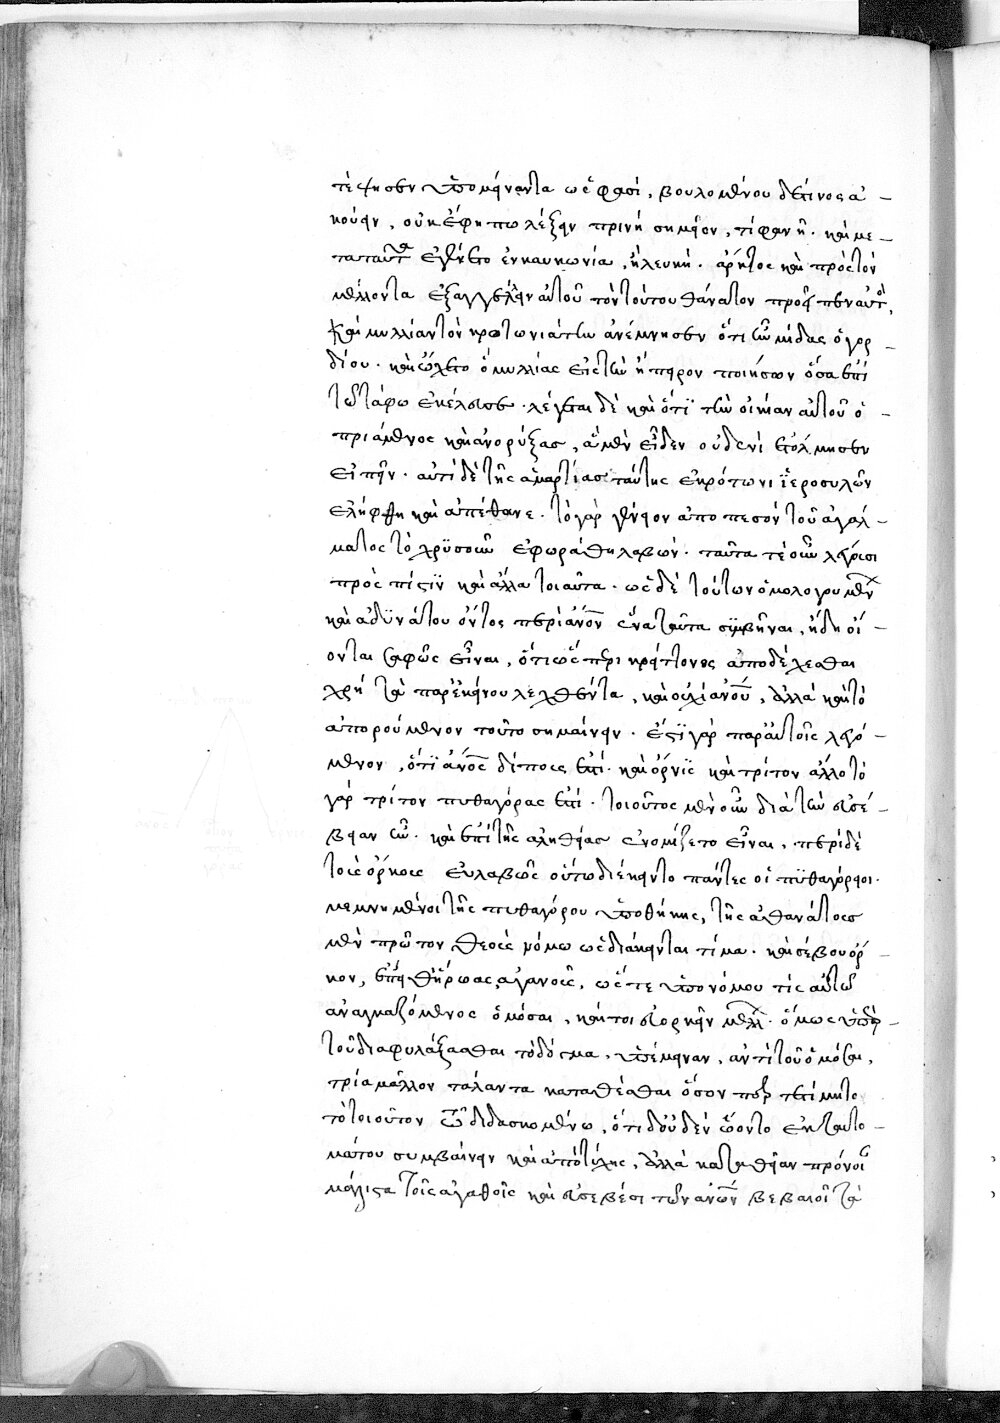 τέψησεν ὑπομείναντα ὥς φασί. βουλομένου δέ τινος ἀ-
κούειν, οὐκ ἔφη πω λέξειν πρινὴ σημεῖον, τί φανῆ. καὶ με-
τὰ ταῦτα ἐγένετο ἐν καυκωνία, ἡ λευκὴ. ἄρκτος καὶ πρὸς τὸν
μέλλοντα ἐξαγγέλλειν αὐτοῦ τὸν τούτου θάνατον προεῖπεν αὐτὸ.
καὶ μυλλίαν τὸν κροτωνιάτην ἀνέμνησεν ὅτι ἦν μίδας ὁ γορ-
δίου. καὶ ὤχετο ὁ μυλλίας εἰς τὴν ἤπειρον ποιήσων ὅσα ἐπὶ
τῶ τάφω ἐκέλευσε. λέγεται δὲ καὶ ὅτϊ τὴν οἰκίαν αὐτοῦ ὁ-
πριάμενος καὶ ἀνορύξας, ἃ μὲν εἶδεν οὐδενὶ ἐτόλμησεν
εἰπεῖν. αντὶ δὲ τῆς ἁμαρτίας ταύτης ἐν κρότωνι ϊεροσυλῶν
ἐλήφθη καὶ ἀπέθανε. τὸ γὰρ γένειον ἀποπεσὸν τοῦ ἀγάλ-
ματος τὸ χρϋσοῦν ἐφωράθη λαβών. ταῦτα τὲ οὖν λέγουσι
πρὸς πίστϊν καὶ ἄλλα τοιαῦτα. ὡς δὲ τούτων ὁμολογουμένων
καὶ αδϋνάτου ὄντος περὶ ἄνον ἕνα ταῦτα σϋμβῆναι, ἤδη οἴ-
ονται σαφῶς εἶναι, ὅτι ὡς περὶ κρείττονος ἀποδέχεσθαι
χρὴ τὰ παρ ἐκείνου λεχθέντα, καὶ οὐχὶ ἀνοῦ, ἀλλὰ καὶ τὸ
ἀπορούμενον τοῦτο σημαίνειν. ἔστϊ γὰρ παρ αὐτοῖς λεγό-
μενον, ὅτϊ ἄνος δίπους ἐστὶ. καὶ ὄρνϊς καὶ τρίτον ἄλλο τὸ
γὰρ τρίτον πυθαγόρας ἐστὶ. τοιοῦτος μὲν οὖν διὰ τὴν εὐσέ-
βειαν ἦν. καὶ ἐπὶ τῆς ἀληθείας ἐνομίζετο εἶναι. περὶ δὲ
τοὺς ὅρκους εὐλαβῶς οὕτω διέκειντο πάντες οἱ πϋθαγόρειοι.
μεμνημένοι τῆς πυθαγόρου ὑποθήκης, τῆς ἀθανάτους
μὲν πρῶτον θεοὺς νόμω ὡς διάκεινται τίμα. καὶ σέβου ὅρ-
κον, ἔπειθ ἥρωας ἀγανούς, ὥς τε ὑπὸ νόμου τὶς αὐτῶν
ἀναγκαζόμενος ὀμόσαι, καί τοι εὐορκεῖν μέλλων. ὅμως ὑπὲρ-
τοῦ διαφυλάξασθαι τὸ δόγμα, ὑπέμεινεν, ἀντὶ τοῦ ὀμόσαι,
τρία μᾶλλον τάλαντα καταθέσθαι ὅσον περ τετίμητο
τὸ τοιοῦτον τῶ διδασκομένω, ὅτι δ οὐδὲν ὤοντο ἐκ ταὐτο-
μάτου συμβαίνειν καὶ ἀπὸ τύχης, ἀλλὰ κατὰ θείαν πρόνοι
μάλιστα τοῖς ἀγαθοῖς καὶ εὐσεβέσι τῶν ἀνων βεβαιοῖ τὰ